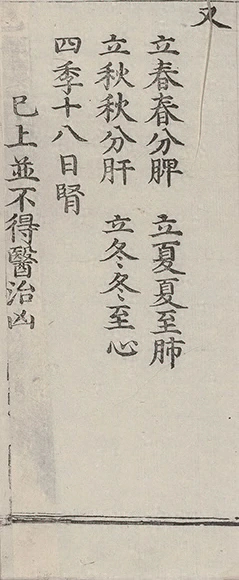 又
立春春分脾 立夏夏至肺
立秋秋分肝 立冬冬至心
四季十八日腎
巳上並不得醫治凶